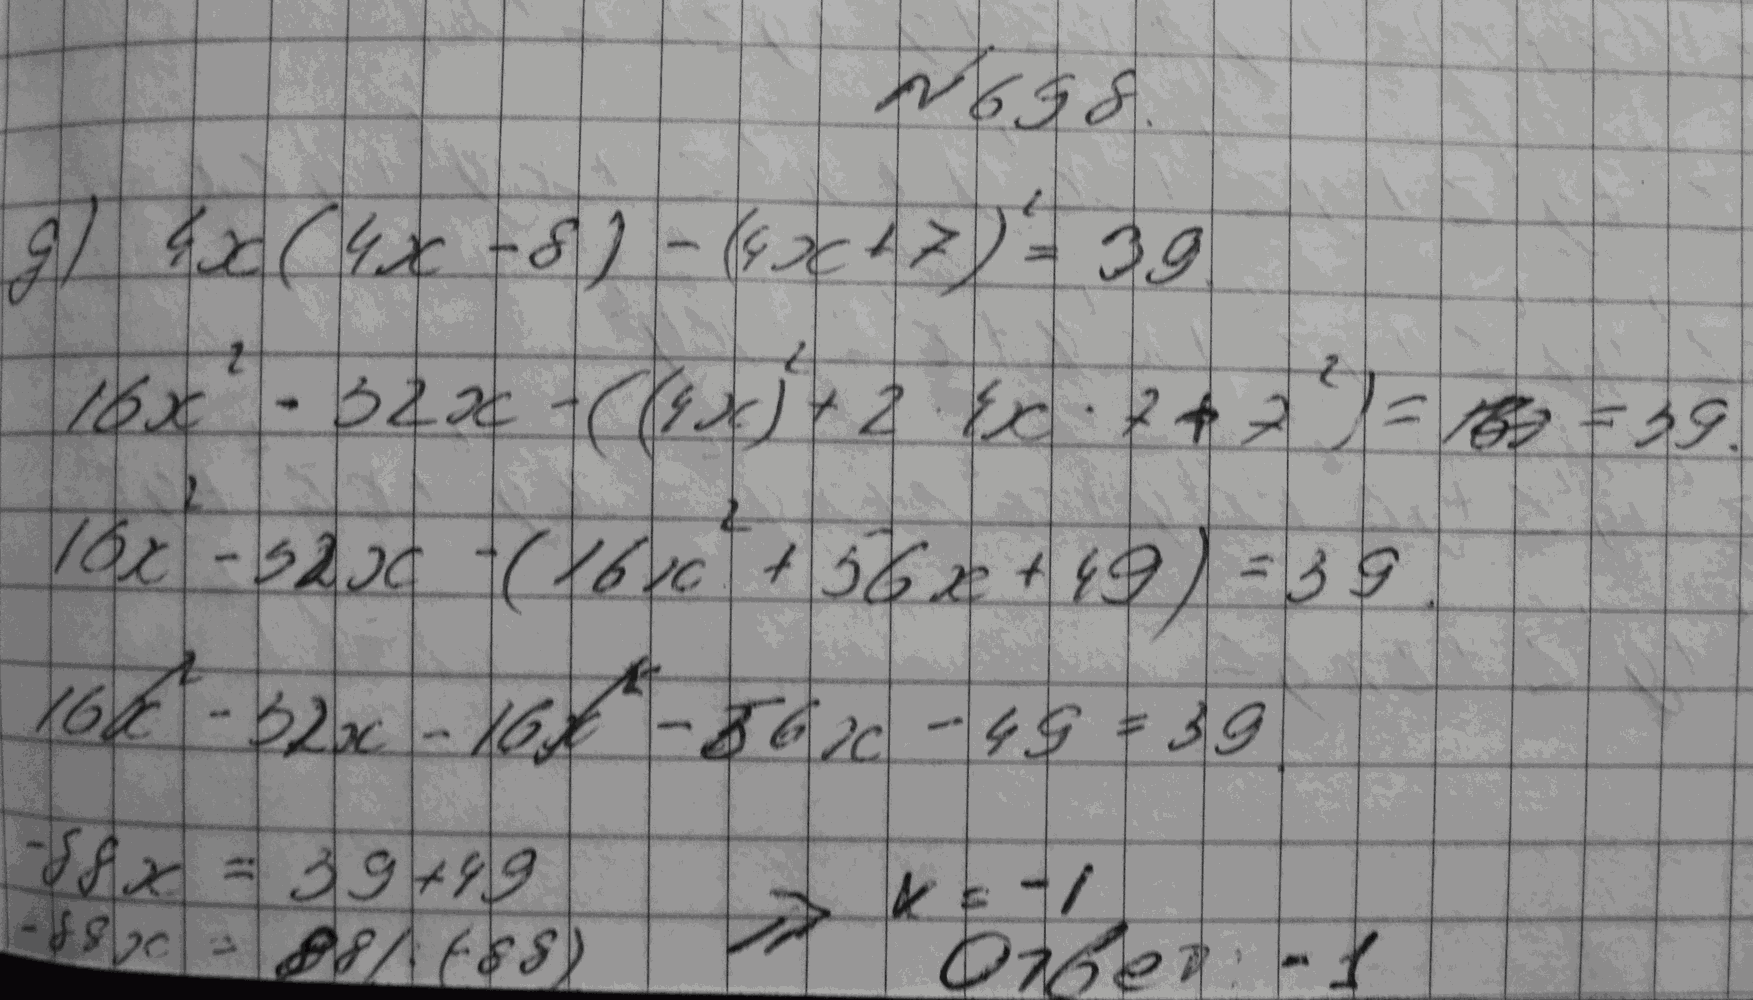 №698.
д) 4x(4x - 8) - (4x + 7)² = 39.
16x² - 32x - ((4x)² + 2 · 4x · 7 + 7²) = = 39.
16x² - 32x - (16x² + 56x + 49) = 39.
16x² - 32x - 16x² - 56x - 49 = 39.
-88x = 39 + 49
-88x = 88 /: (-88) ⇒ x = -1
Ответ: -1